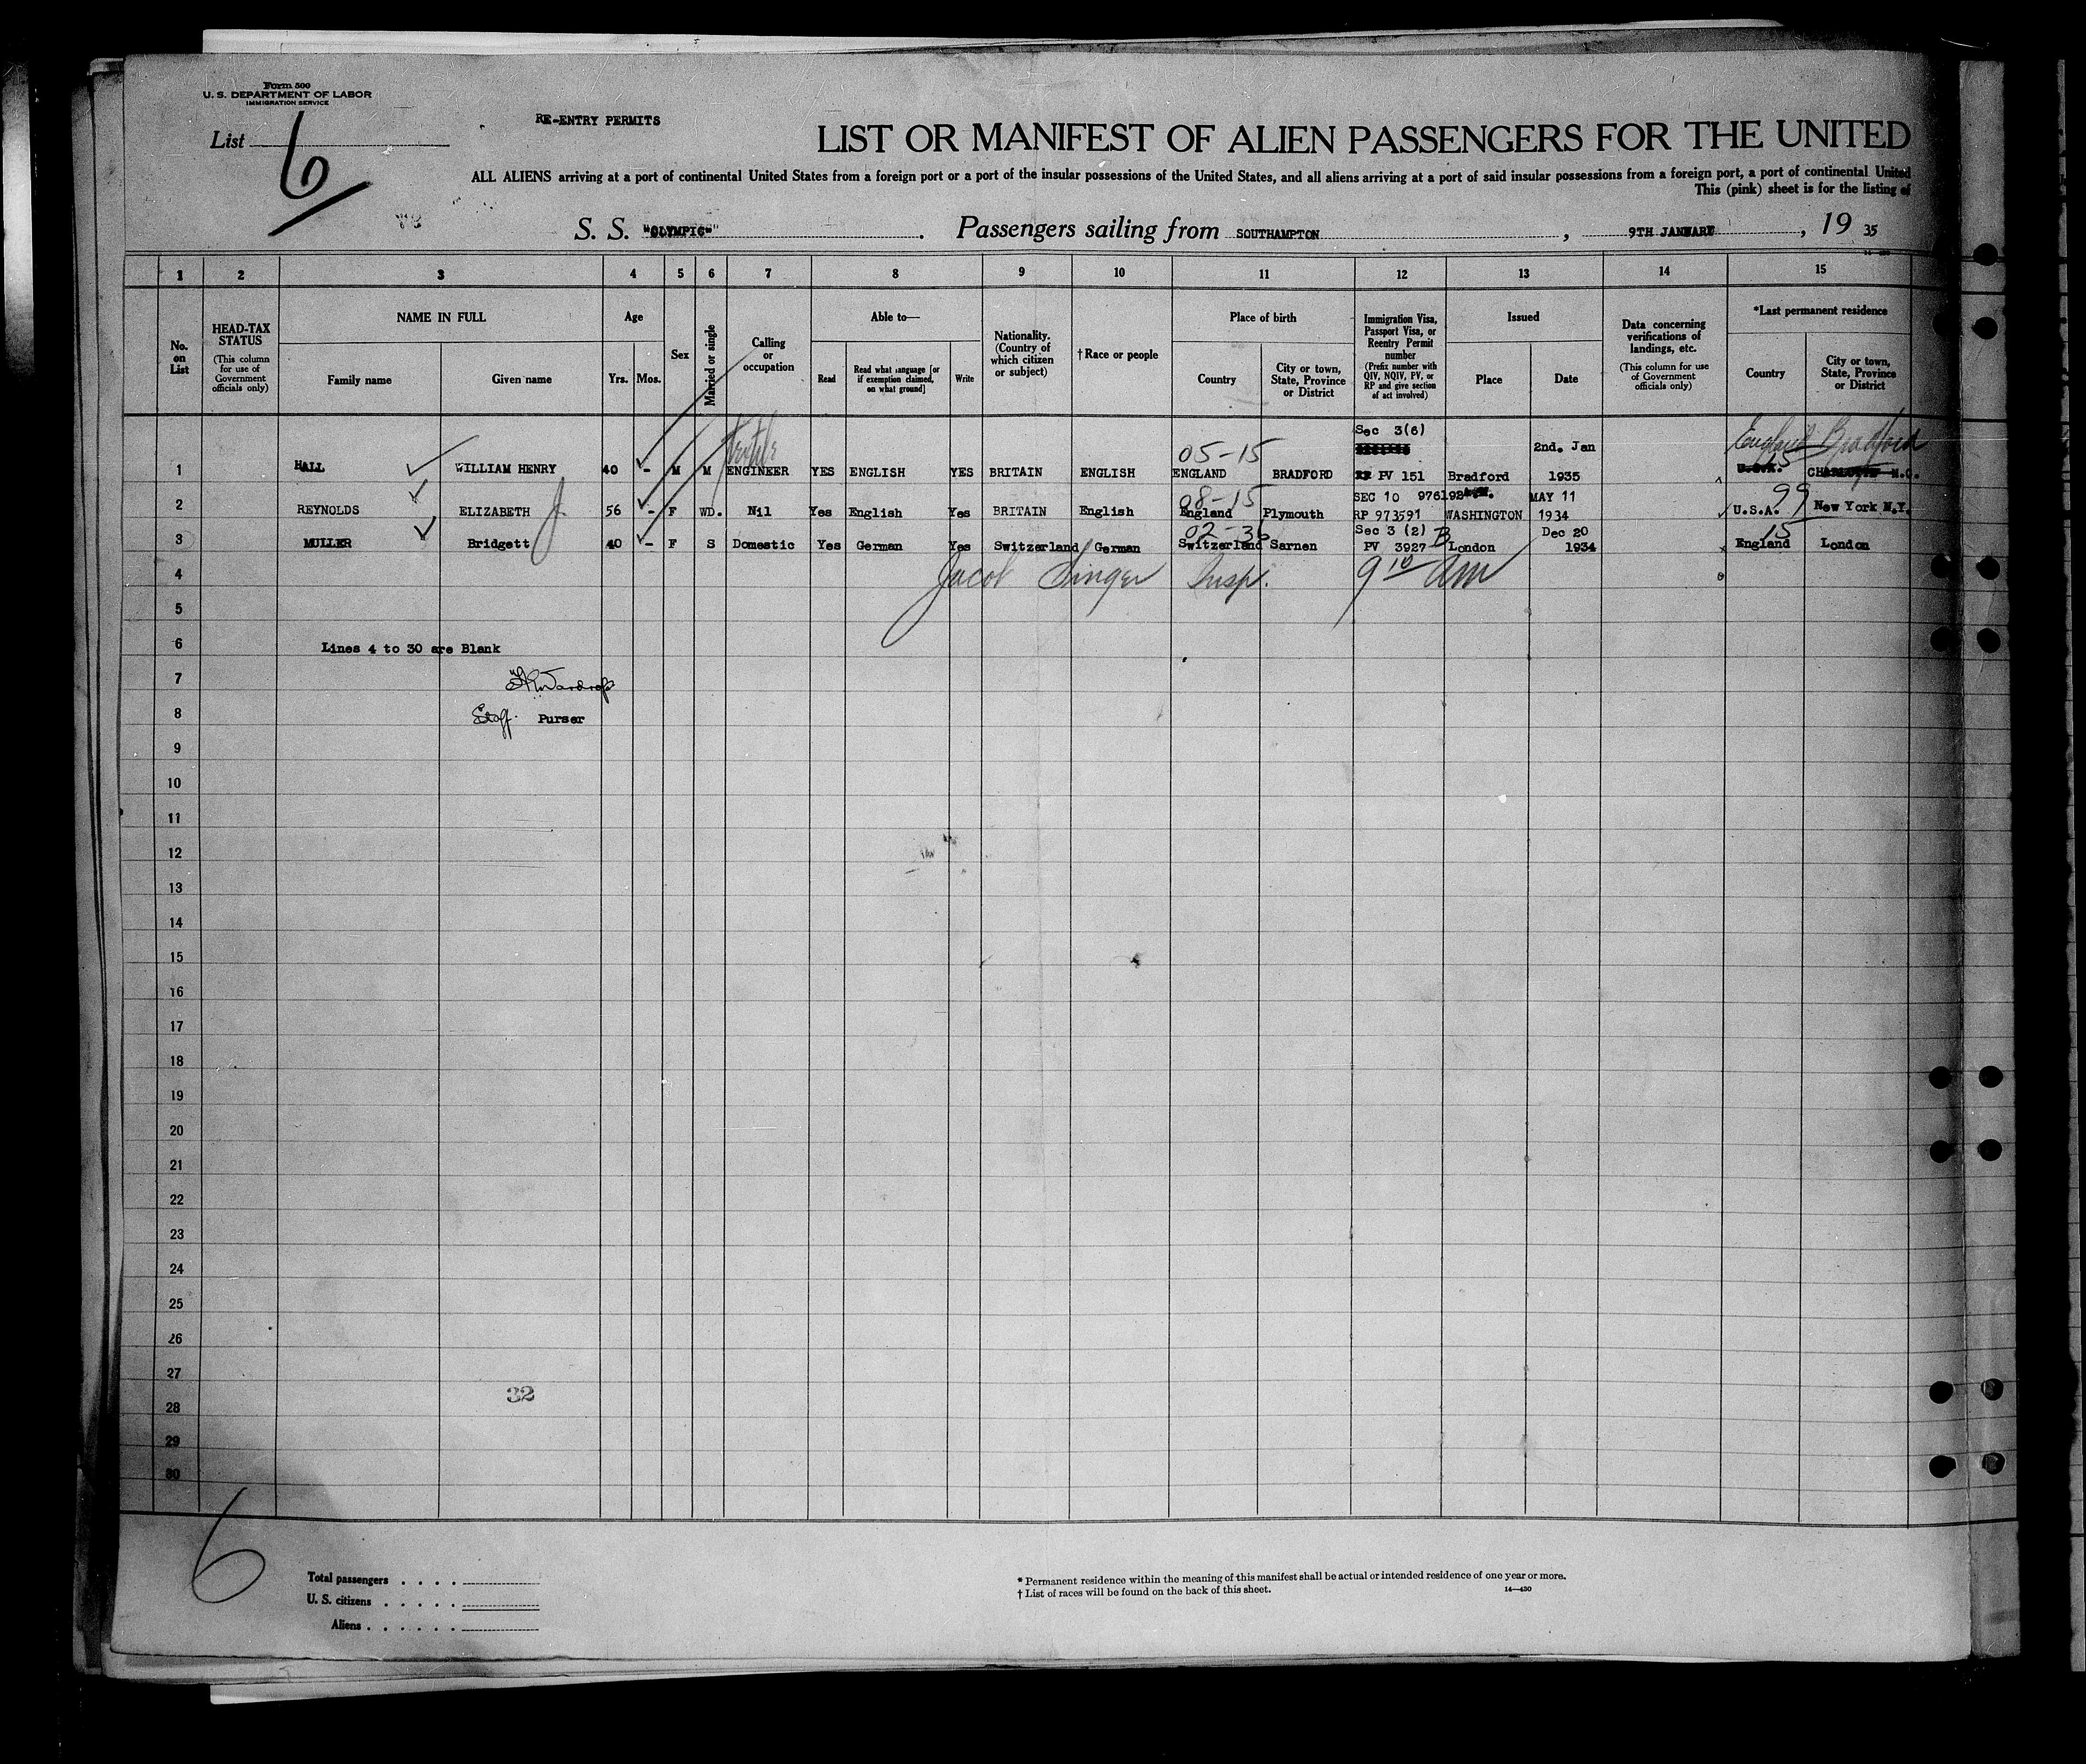 Form 500
U. S. DEPARTMENT OF LABOR
IMMIGRATION SERVICE
List 6
RE-ENTRY PERMITS
LIST OR MANIFEST OF ALIEN PASSENGERS FOR THE UNITED
ALL ALIENS arriving at a port of continental United States from a foreign port or a port of the insular possessions of the United States, and all aliens arriving at a port of said insular possessions from a foreign port, a port of continental United
This (pink) sheet is for the listing of
S. S. "OLYMPIC" . Passengers sailing from SOUTHAMPTON , 9TH JANUARY , 19 35
1 2 3 4 5 6 7 8 9 10 11 12 13 14 15
No. on List
HEAD-TAX STATUS (This column for use of Government officials only)
NAME IN FULL Family name Given name
Age Yrs. Mos.
Sex
Married or single
Calling or occupation
Able to— Read Read what language [or if exemption claimed, on what ground] Write
Nationality. (Country of which citizen or subject)
†Race or people
Place of birth Country City or town, State, Province or District
Immigration Visa, Passport Visa, or Reentry Permit number (Prefix number with QIV, NQIV, PV, or RP and give section of act involved)
Issued Place Date
Data concerning verifications of landings, etc. (This column for use of Government officials only)
*Last permanent residence Country City or town, State, Province or District
Textile 05-15 Sec 3(6) 2nd. Jan England Bradford
1 HALL WILLIAM HENRY 40 - M M ENGINEER YES ENGLISH YES BRITAIN ENGLISH ENGLAND BRADFORD PV 151 Bradford 1935 U.S.A. 15 CHARLOTTE N.C.
08-15 SEC 10 976192 MAY 11 99
2 REYNOLDS ELIZABETH J 56 - F WD. Nil Yes English Yes BRITAIN English England Plymouth RP 973591 WASHINGTON 1934 U.S.A. New York N.Y.
02-36 Sec 3 (2) B Dec 20 15
3 MULLER Bridgett 40 - F S Domestic Yes German Yes Switzerland German Switzerland Sarnen PV 3927 London 1934 England London
4 Jacob Singer Insp. 9 10 AM
5
6 Lines 4 to 30 are Blank
7
8 Staff Purser
9
10
11
12
13
14
15
16
17
18
19
20
21
22
23
24
25
26
27
32
28
29
30
6
Total passengers . . . .
U. S. citizens . . . . .
Aliens . . . . . .
* Permanent residence within the meaning of this manifest shall be actual or intended residence of one year or more.
† List of races will be found on the back of this sheet. 14—430